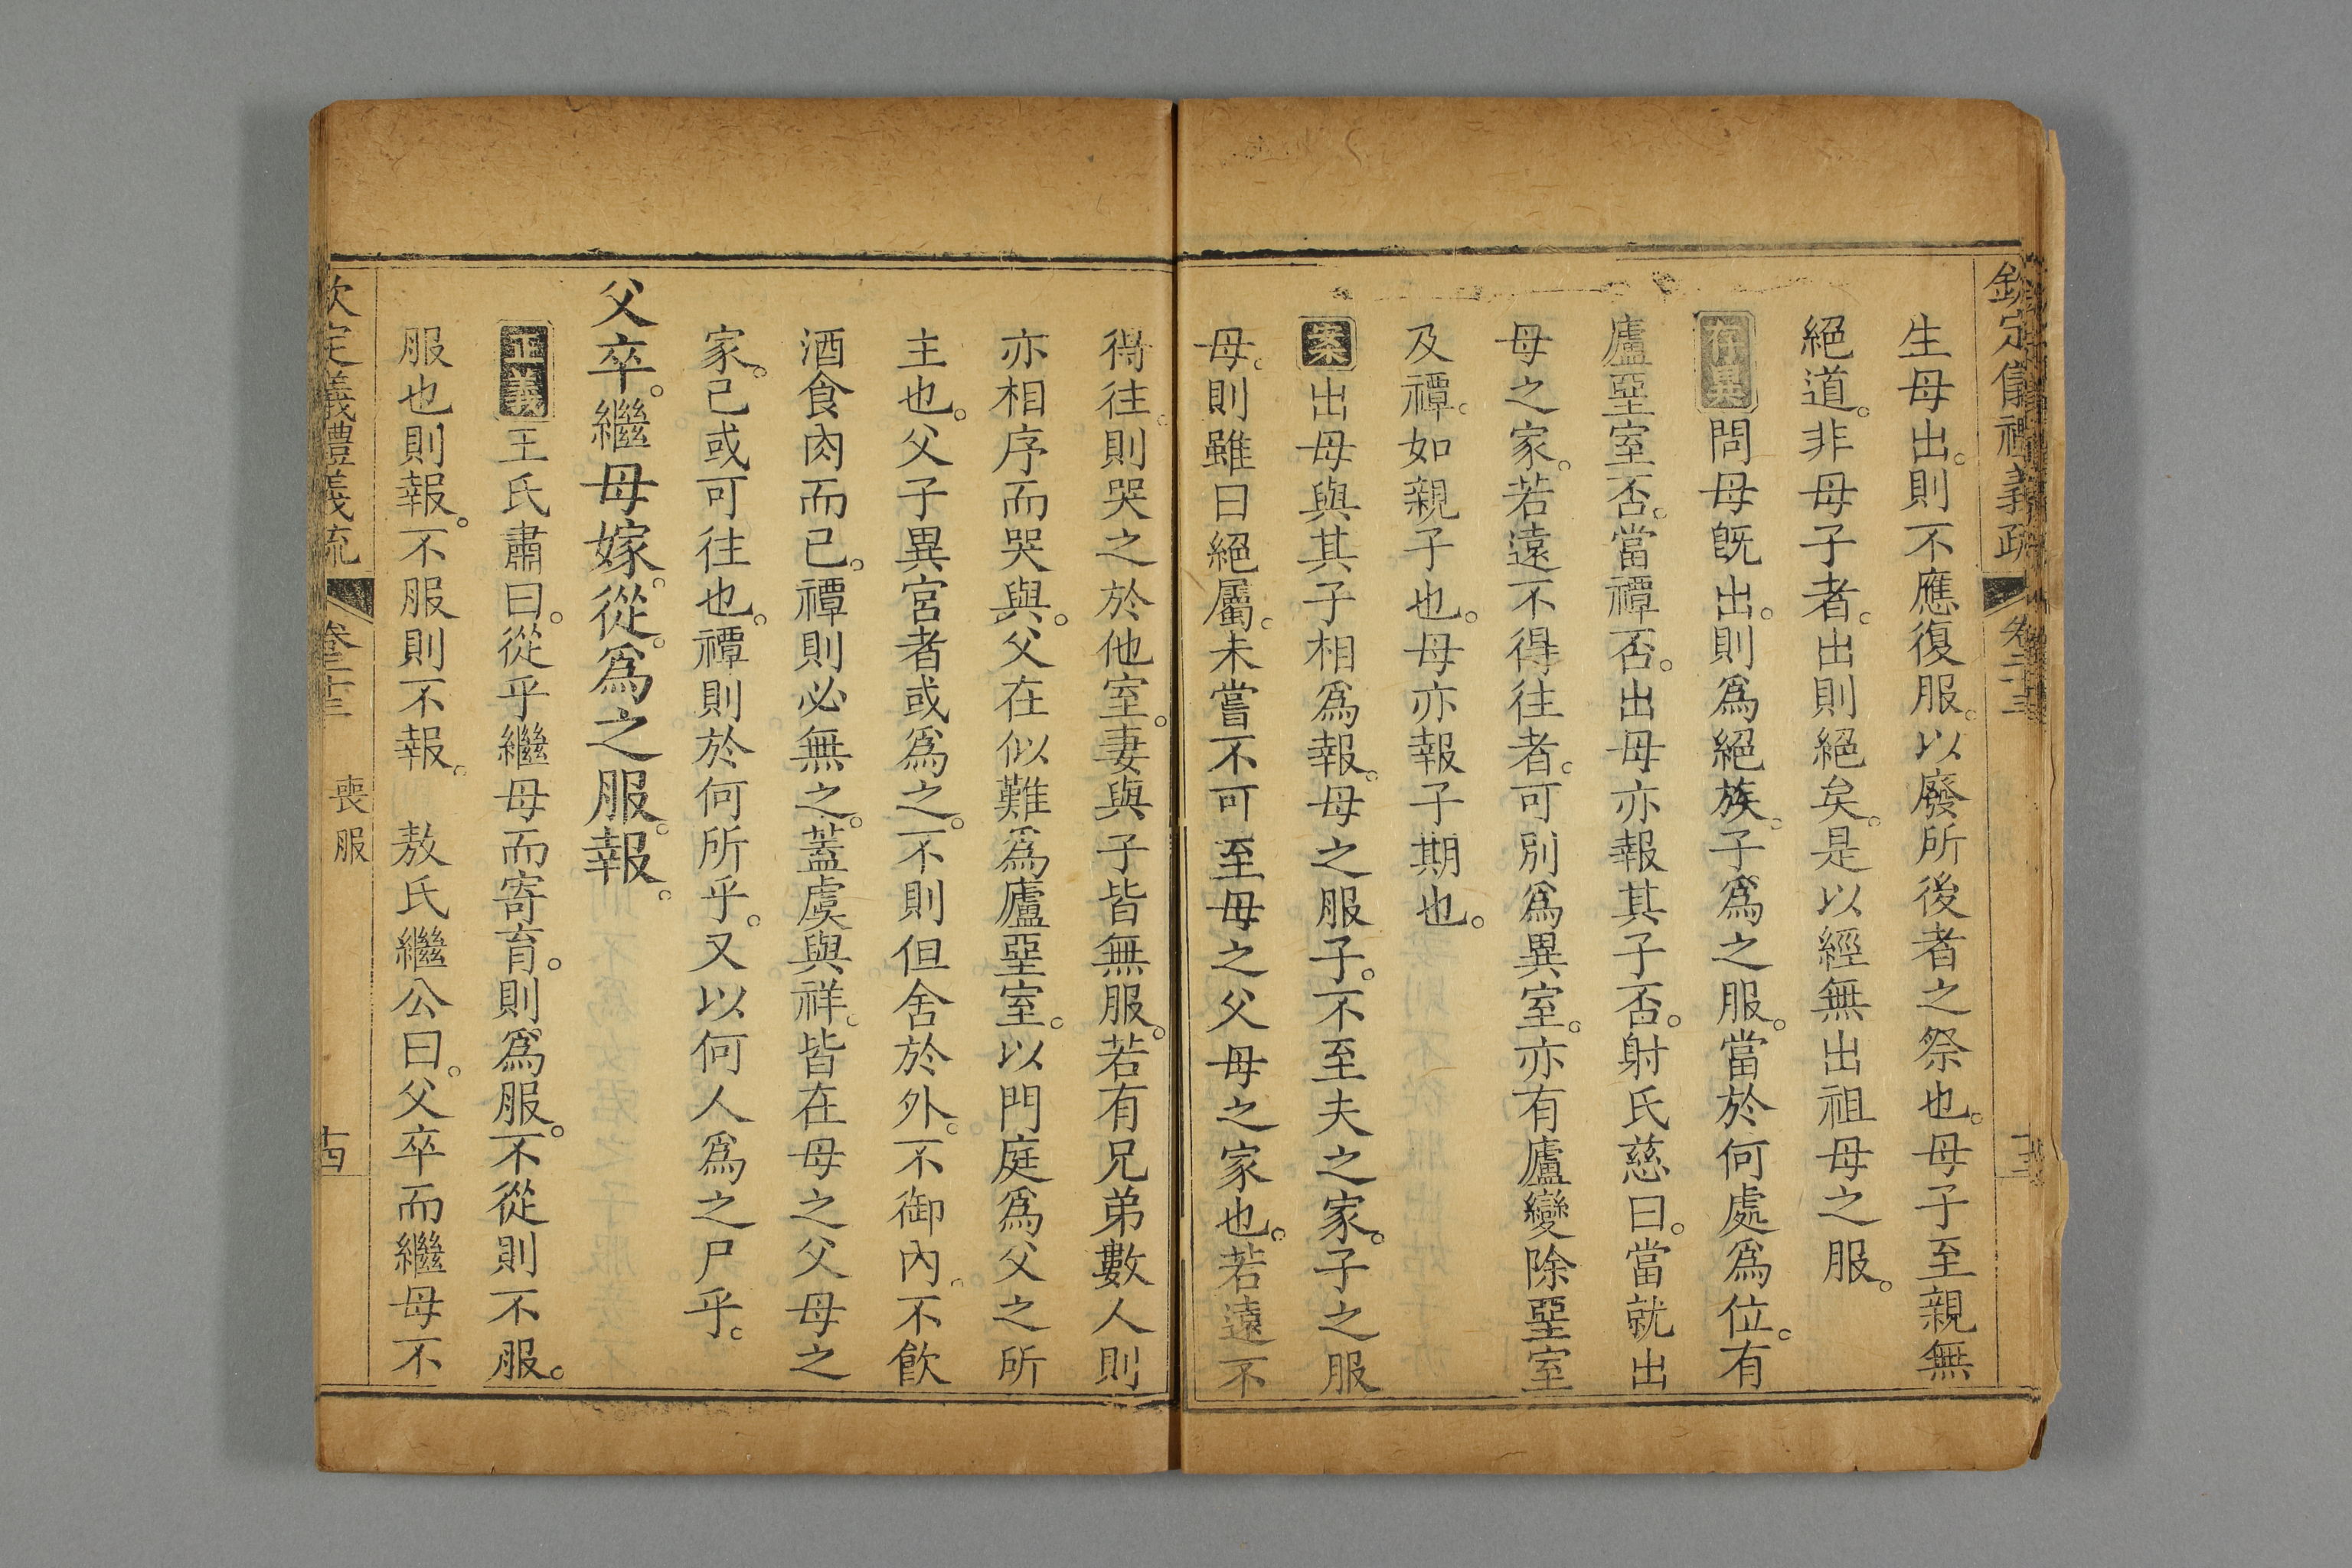 欽定儀禮義疏 卷二十三 十三
生母出。則不應復服。以廢所後者之祭也。母子至親無
絕道。非母子者。出則絕矣。是以經無出祖母之服。
存異問母旣出。則爲絕族。子爲之服。當於何處爲位。有
廬堊室否。當禫否。出母亦報其子否。射氏慈曰。當就出
母之家。若遠不得往者。可別爲異室。亦有廬變除堊室
及禫。如親子也。母亦報子期也。
案出母與其子相爲報。母之服子。不至夫之家。子之服
母。則雖曰絕屬。未嘗不可至母之父母之家也。若遠不
得往。則哭之於他室。妻與子皆無服。若有兄弟數人則
亦相序而哭與。父在似難爲廬堊室。以門庭爲父之所
主也。父子異宮者或爲之。不則但舍於外。不御內。不飮
酒食肉而已。禫則必無之。蓋虞與祥。皆在母之父母之
家。己或可往也。禫則於何所乎。又以何人爲之尸乎。
父卒。繼母嫁。從。爲之服。報。
正義王氏肅曰。從乎繼母而寄育。則爲服。不從則不服。
服也則報。不服則不報。 敖氏繼公曰。父卒而繼母不
欽定儀禮義疏 卷二十三 喪服 十四